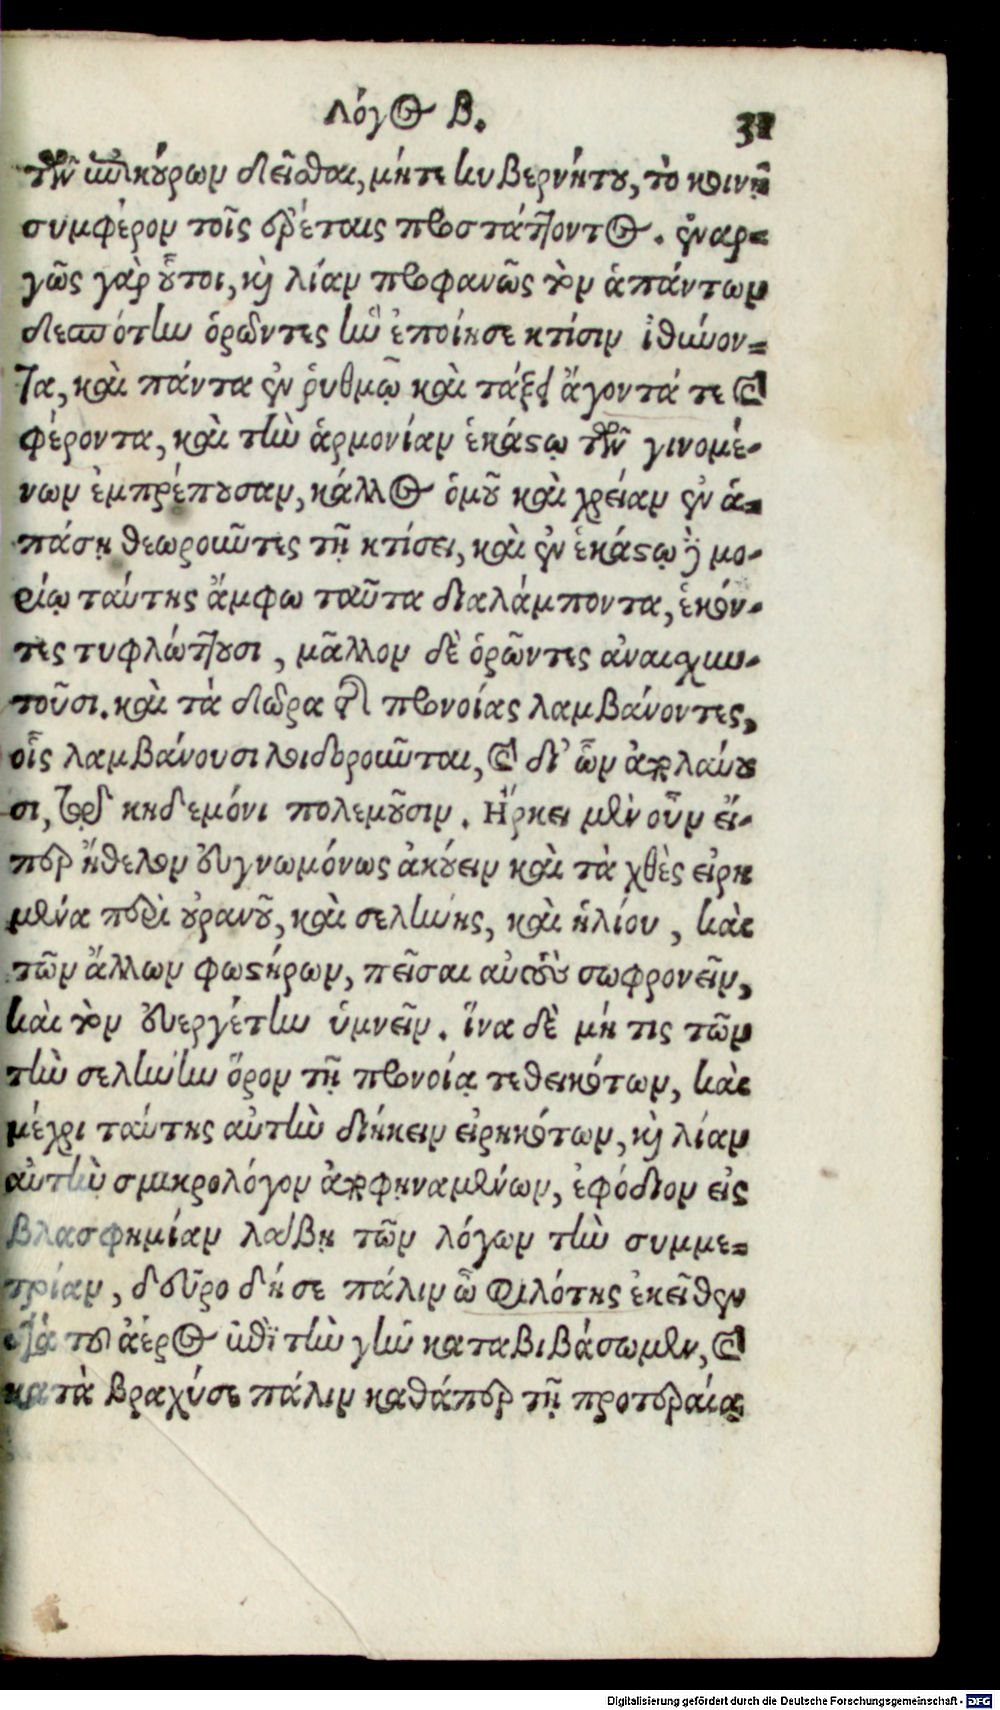 Λόγος Β. 31
τῶν ἐπικούρων δεῖσθαι, μήτε κυβερνήτου, τὸ κοινῇ
συμφέρον τοῖς ἐρέταις προστάττοντος. ἐναρ=
γῶς γὰρ οὗτοι, καὶ λίαν προφανῶς τὸν ἁπάντων
δεσπότην ὁρῶντες ἣν ἐποίησε κτίσιν ἰθύνον=
τα, καὶ πάντα ἐν ῥυθμῷ καὶ τάξει ἄγοντά τε καὶ
φέροντα, καὶ τὴν ἁρμονίαν ἑκάστῳ τῶν γινομέ-
νων ἐμπρέπουσαν, κάλλος ὁμοῦ καὶ χρείαν ἐν ἁ=
πάσῃ θεωροῦντες τῇ κτίσει, καὶ ἐν ἑκάστῳ μο-
ρίῳ ταύτης ἄμφω ταῦτα διαλάμποντα, ἑκόν-
τες τυφλώττουσι, μᾶλλον δὲ ὁρῶντες ἀναισχυν-
τοῦσι. καὶ τὰ δῶρα τῆς προνοίας λαμβάνοντες,
οἷς λαμβάνουσι λοιδοροῦνται, καὶ δι' ὧν ἀπολαύου
σι, τῷ κηδεμόνι πολεμοῦσιν. Ἤρκει μὲν οὖν εἴ-
περ ἤθελον εὐγνωμόνως ἀκούειν καὶ τὰ χθὲς εἰρη
μένα περὶ οὐρανοῦ, καὶ σελήνης, καὶ ἡλίου, καὶ
τῶν ἄλλων φωστήρων, πεῖσαι αὐτοὺς σωφρονεῖν,
καὶ τὸν εὐεργέτην ὑμνεῖν. ἵνα δὲ μή τις τῶν
τὴν σελήνην ὅρον τῇ προνοίᾳ τεθεικότων, καὶ
μέχρι ταύτης αὐτὴν διήκειν εἰρηκότων, καὶ λίαν
αὐτὴν σμικρολόγον ἀποφηναμένων, ἐφόδιον εἰς
βλασφημίαν λάβῃ τῶν λόγων τὴν συμμε=
τρίαν, δεῦρο δή σε πάλιν ὦ φιλότης ἐκεῖθεν
μετὰ τοῦ ἀέρος ἐπὶ τὴν γῆν καταβιβάσωμεν, καὶ
κατὰ βραχύ σε πάλιν καθάπερ τῇ προτεραίᾳ
Digitalisierung gefördert durch die Deutsche Forschungsgemeinschaft - DFG